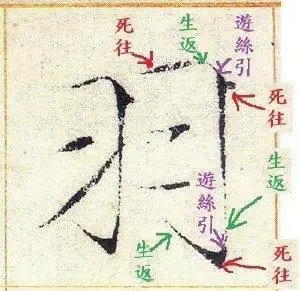 死往
生返
遊絲引
死往
羽
生返
遊絲引
生返
死往